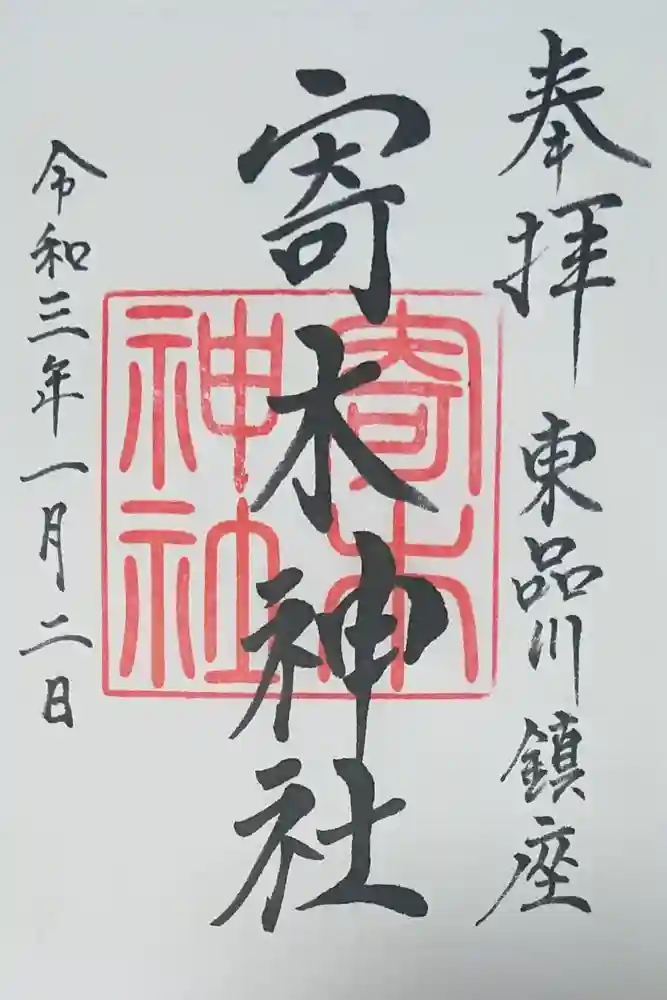 奉拝 東品川鎮座
寄木神社
寄木
神社
令和三年一月二日